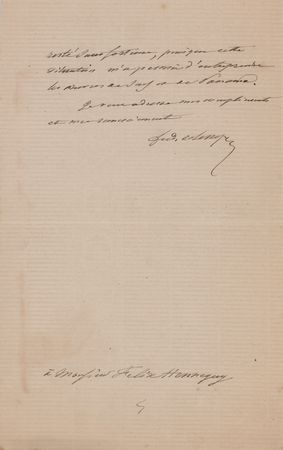 resté sans fortune, puisque cette
situation m'a permis d'entreprendre
les œuvres de Suez et de Panama.
Je vous adresse mes compliments
et mes remerciements
Ferd. de Lesseps
à Monsieur Felix Hennequy